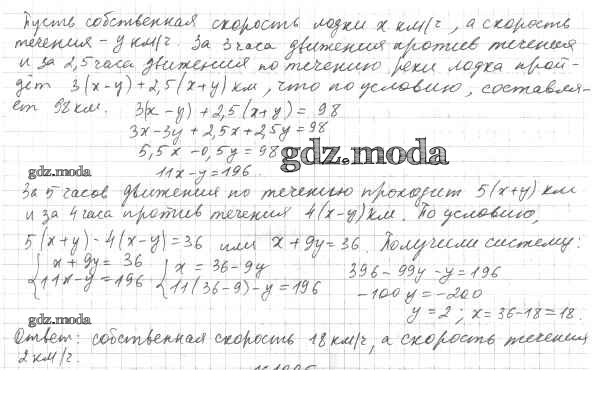 Пусть собственная скорость лодки x км/ч, а скорость
течения - y км/ч. За 3 часа движения против течения
и за 2,5 часа движения по течению реки лодка прой-
дёт 3(x-y)+2,5(x+y) км, что по условию, составля-
ет 98 км. 3(x-y)+2,5(x+y)=98
3x-3y+2,5x+2,5y=98
5,5x-0,5y=98
gdz.moda
gdz.moda
11x-y=196.
За 5 часов движения по течению проходит 5(x+y) км
и за 4 часа против течения 4(x-y) км. По условию,
5(x+y)-4(x-y)=36 или x+9y=36. Получили систему:
{x+9y=36 {x=36-9y 396-99y-y=196
{11x-y=196 {11(36-9)-y=196 -100y=-200
y=2; x=36-18=18.
gdz.moda
Ответ: собственная скорость 18 км/ч, а скорость течения
2 км/ч.